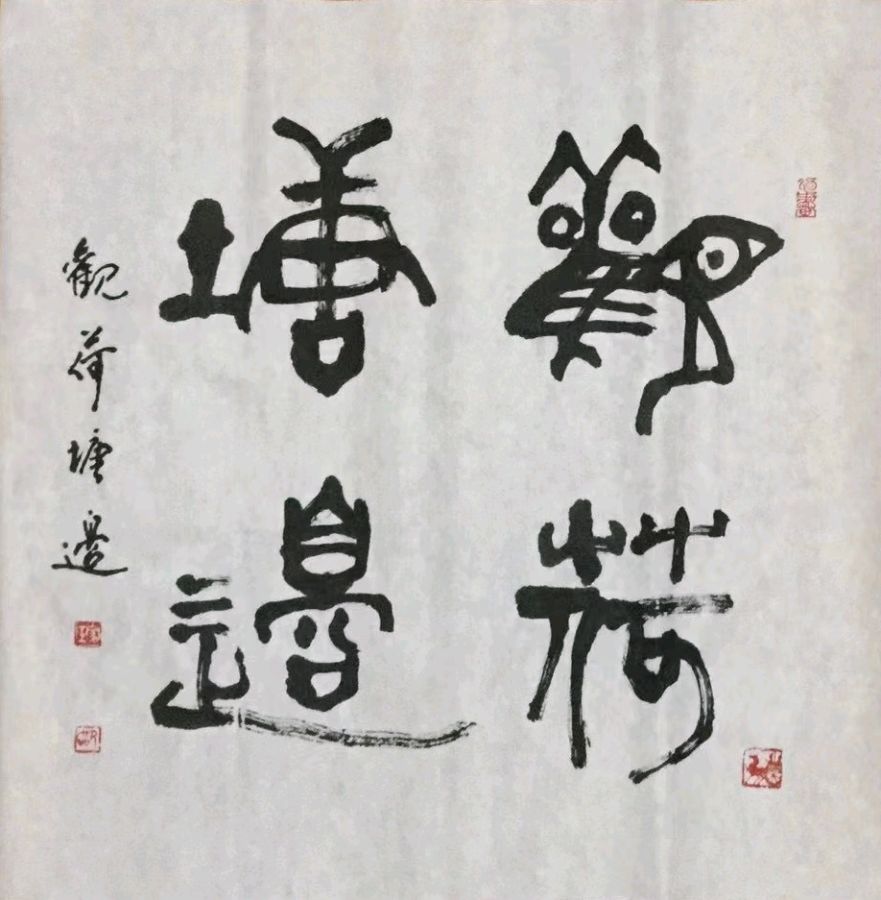 觀荷
塘邊
觀荷塘邊